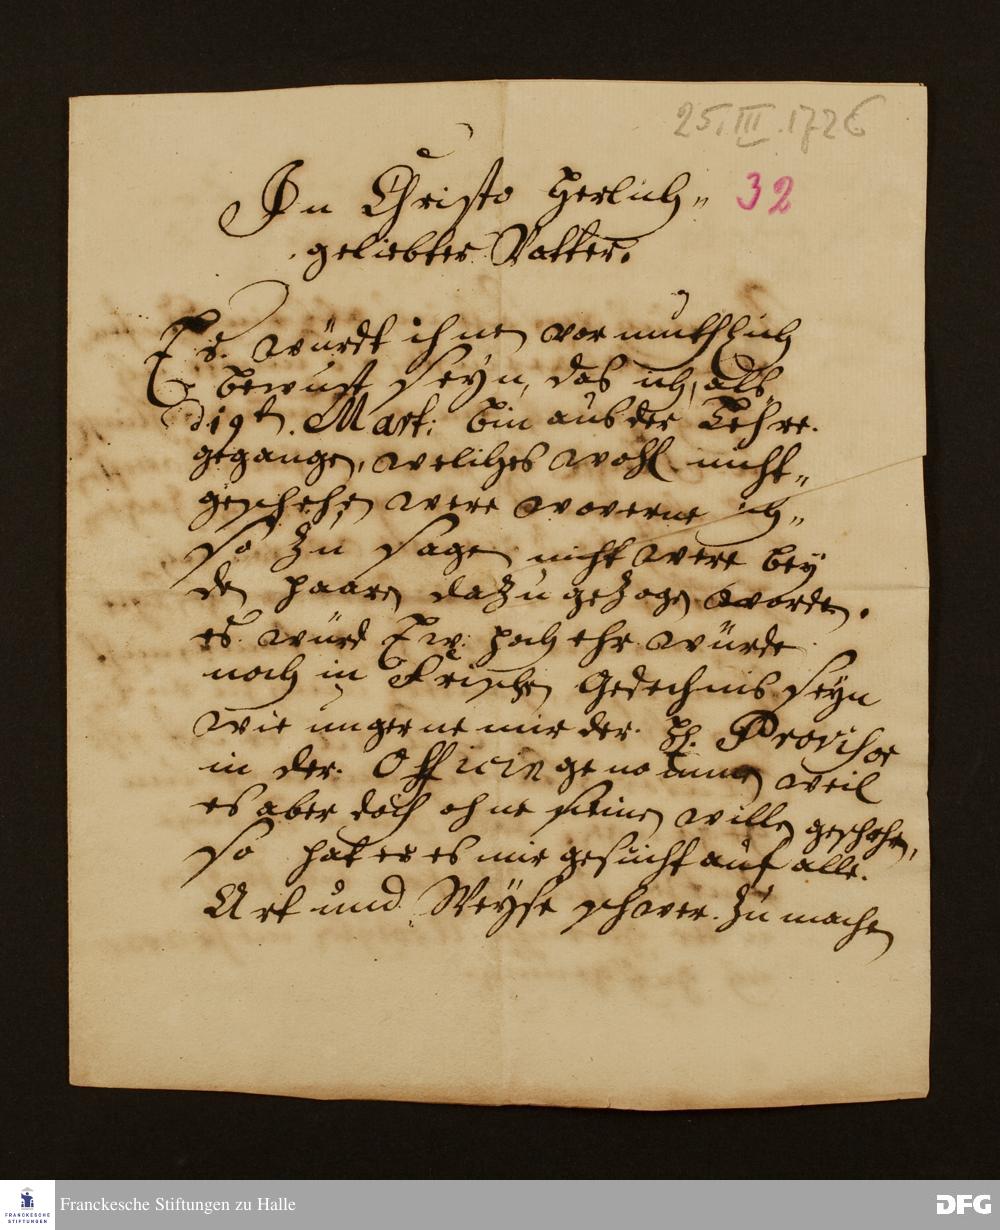 25.III.1726
32
In Christo Herlich„
geliebter Vatter.
Es würdt ihnen vormuthlich
bewust seyn, das ich, als
d 19t. Mart: bin aus der Lehre.
gegangen, weliches wohl nicht„
geschehen were woverne ich„
so zu sagen nicht were bey
den haaren dazu gezogen worden.
es würd Ew: Hoch ehr würde
noch in Frischen Gedechnis seyn
wie ungerne mir der. H. Provisor
in der. Officin genommen weil
es aber doch ohne seinen willen geschehen,
so hat er es mir gesucht auf alle.
Art und Weyse schwer. zu machen
Franckesche Stiftungen zu Halle
FRANCKESCHE
STIFTUNGEN
DFG